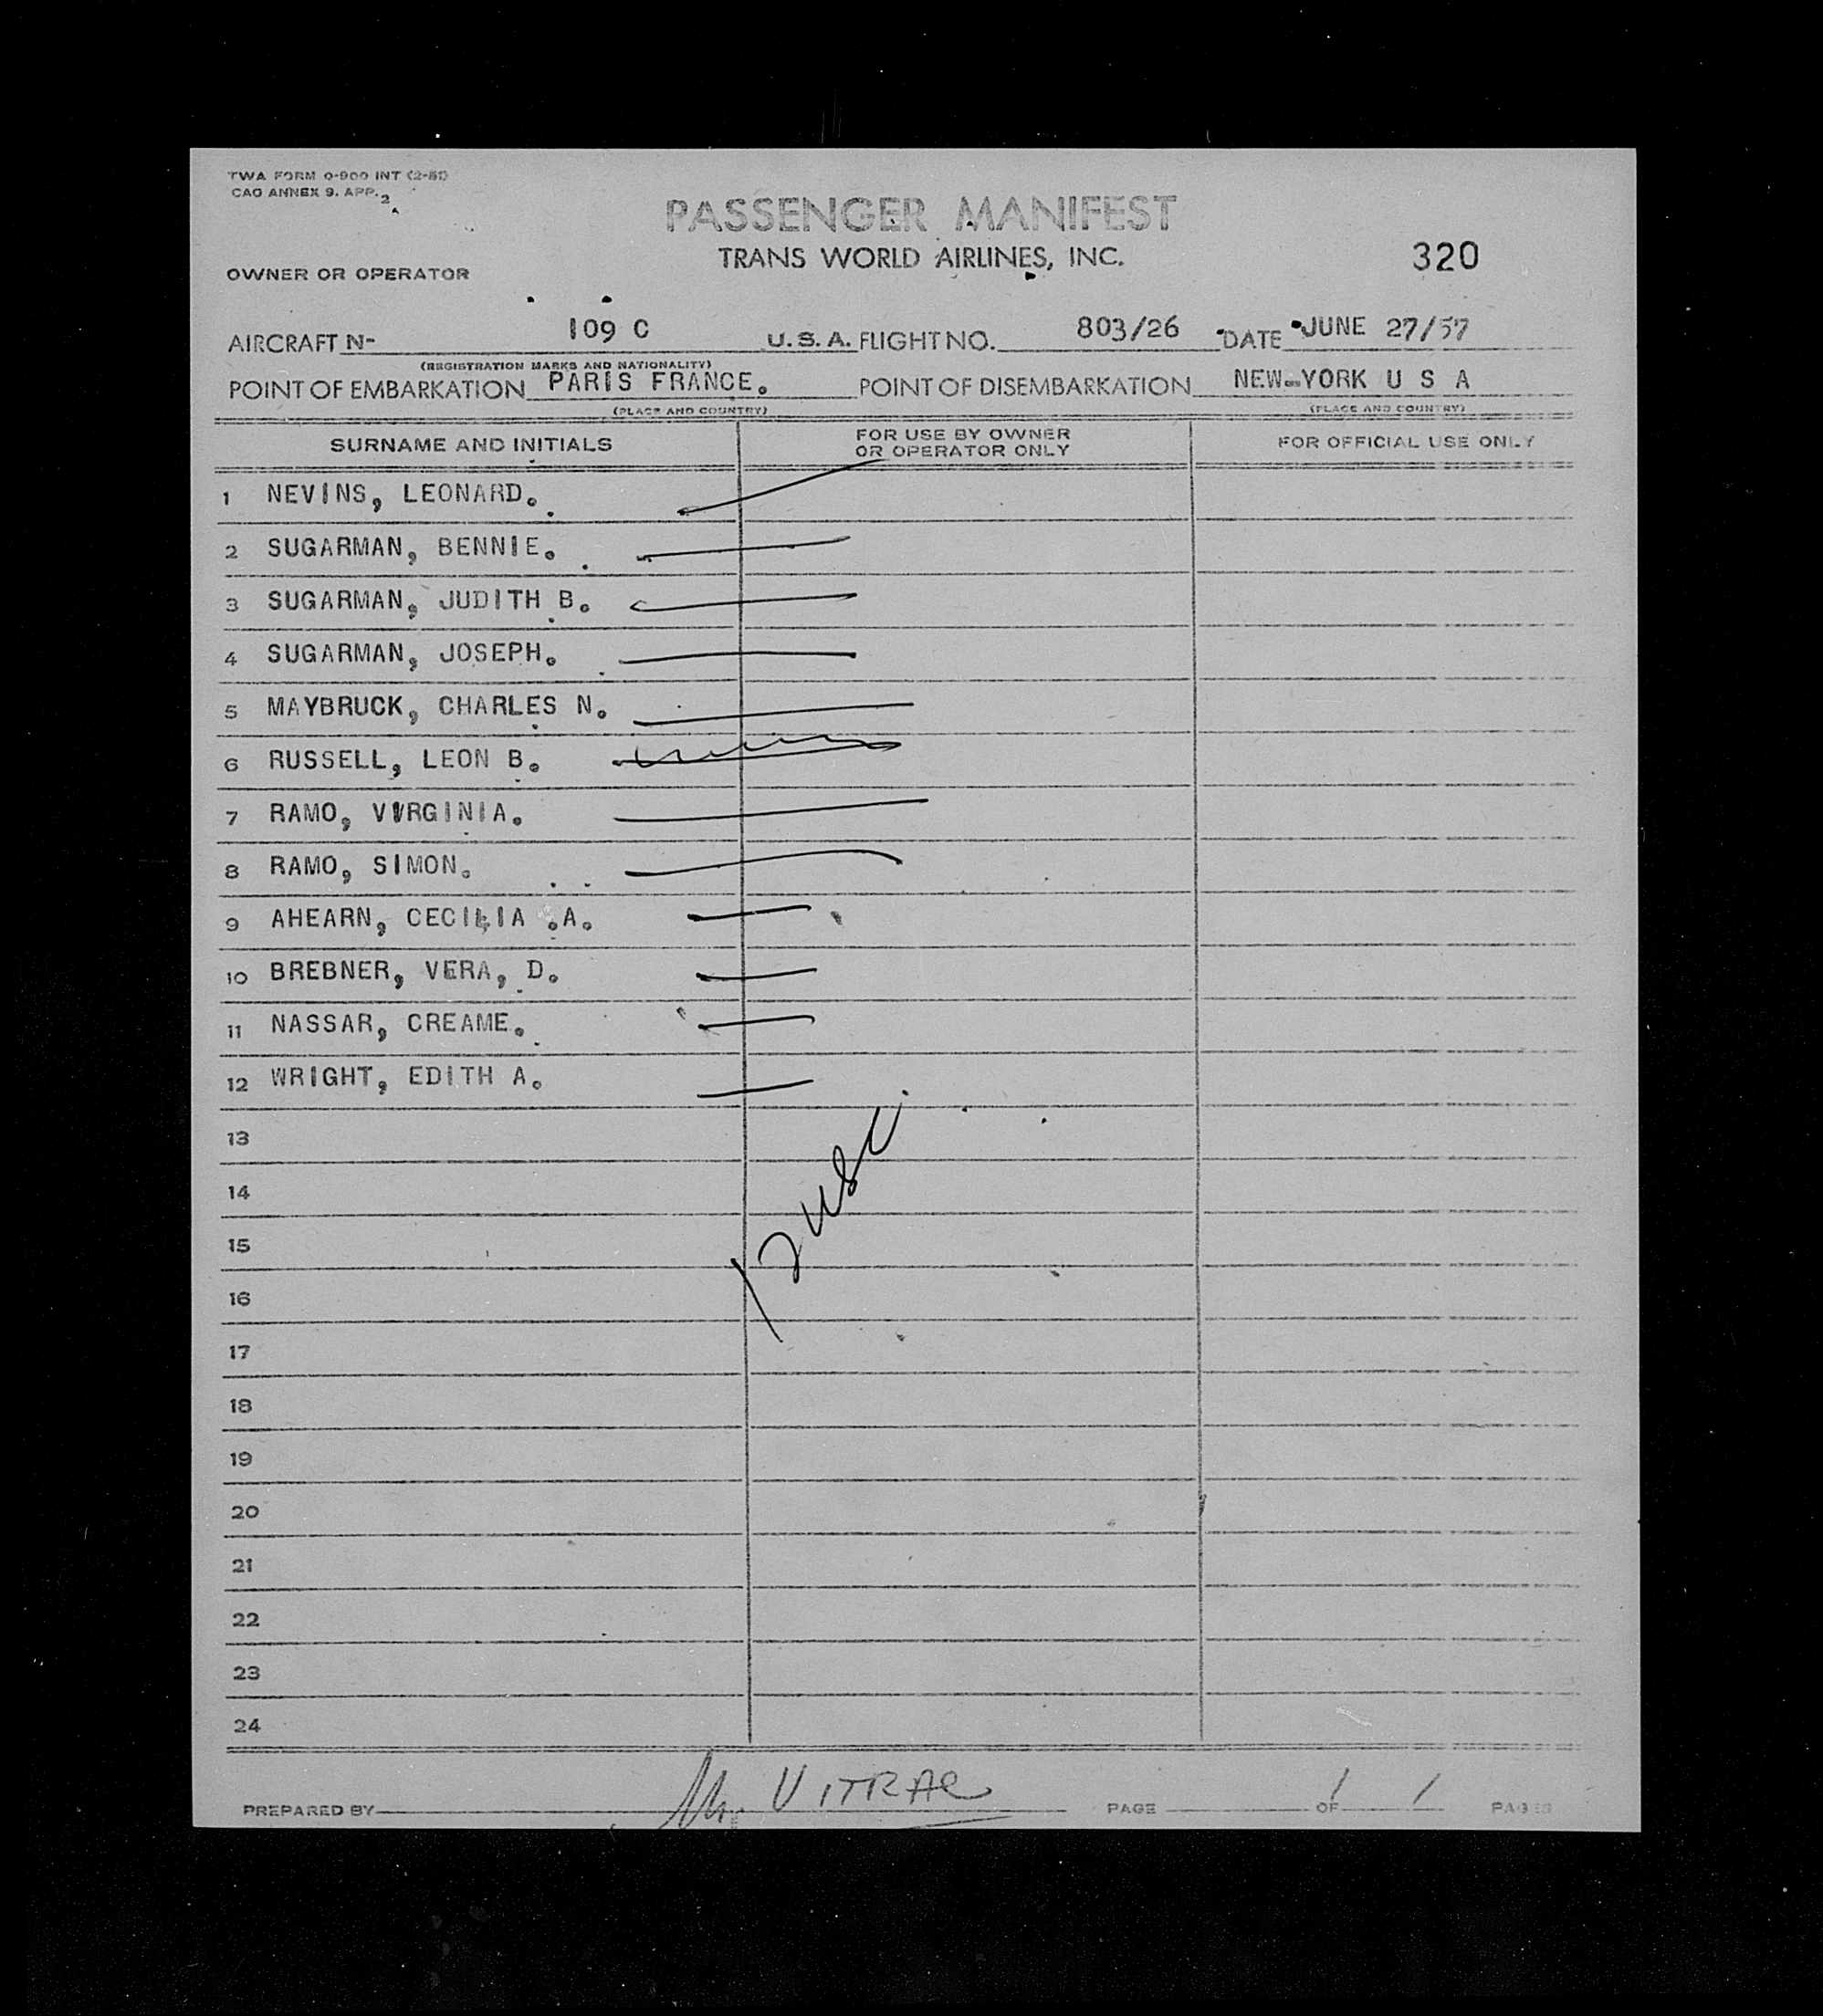 TWA FORM 0-900 INT (2-51)
CAO ANNEX 9. APP. 2
PASSENGER MANIFEST
TRANS WORLD AIRLINES, INC.
320
OWNER OR OPERATOR
AIRCRAFT N- 109 C U.S.A. FLIGHT NO. 803/26 DATE JUNE 27/57
(REGISTRATION MARKS AND NATIONALITY)
POINT OF EMBARKATION PARIS FRANCE. POINT OF DISEMBARKATION NEW-YORK U S A
(PLACE AND COUNTRY) (PLACE AND COUNTRY)
SURNAME AND INITIALS FOR USE BY OWNER OR OPERATOR ONLY FOR OFFICIAL USE ONLY
1 NEVINS, LEONARD.
2 SUGARMAN, BENNIE.
3 SUGARMAN, JUDITH B.
4 SUGARMAN, JOSEPH.
5 MAYBRUCK, CHARLES N.
6 RUSSELL, LEON B.
7 RAMO, VIRGINIA.
8 RAMO, SIMON.
9 AHEARN, CECILIA .A.
10 BREBNER, VERA, D.
11 NASSAR, CREAME.
12 WRIGHT, EDITH A.
13
14
15
16
17
18
19
20
21
22
23
24
12 USC
PREPARED BY VITRAC PAGE 1 OF 1 PAGES